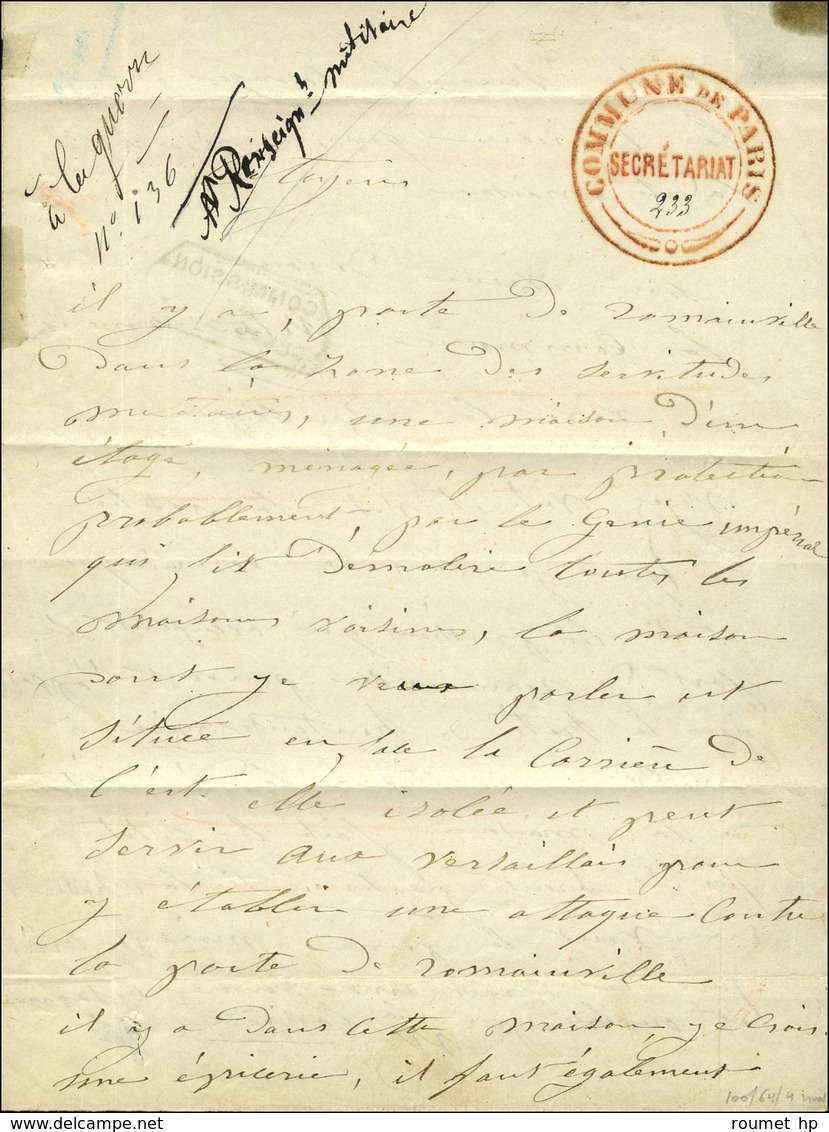 à la guerre
n° 136
Renseignts militaire
COMMUNE DE PARIS
SECRÉTARIAT
233
Citoyens
COMMISSION
il y a, porte de romainville
dans la zone des servitudes
militaires, une maison d'un
étage, ménagée, par protection
probablement, par le génie impérial
qui fit démolire toutes les
maisons voisines, la maison
dont je veux parler est
située en face la carrière de
l'est elle isolée et peut
servir aux versaillais pour
y établir une attaque contre
la porte de romainville
il y a dans cette maison, je crois
une épicerie, il faut également
100/64/4
roumet hp